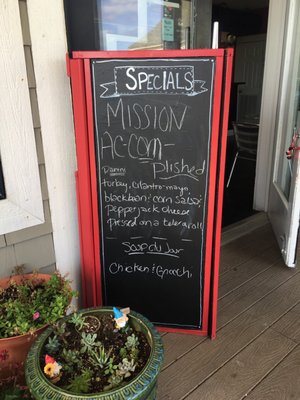 SPECIALS
MISSION
AC-COM-
plished
Panini
turkey, cilantro-mayo,
blackbean & corn salsa
pepperjack cheese
Pressed on a telera roll
Soup du Jour
Chicken & Gnocchi